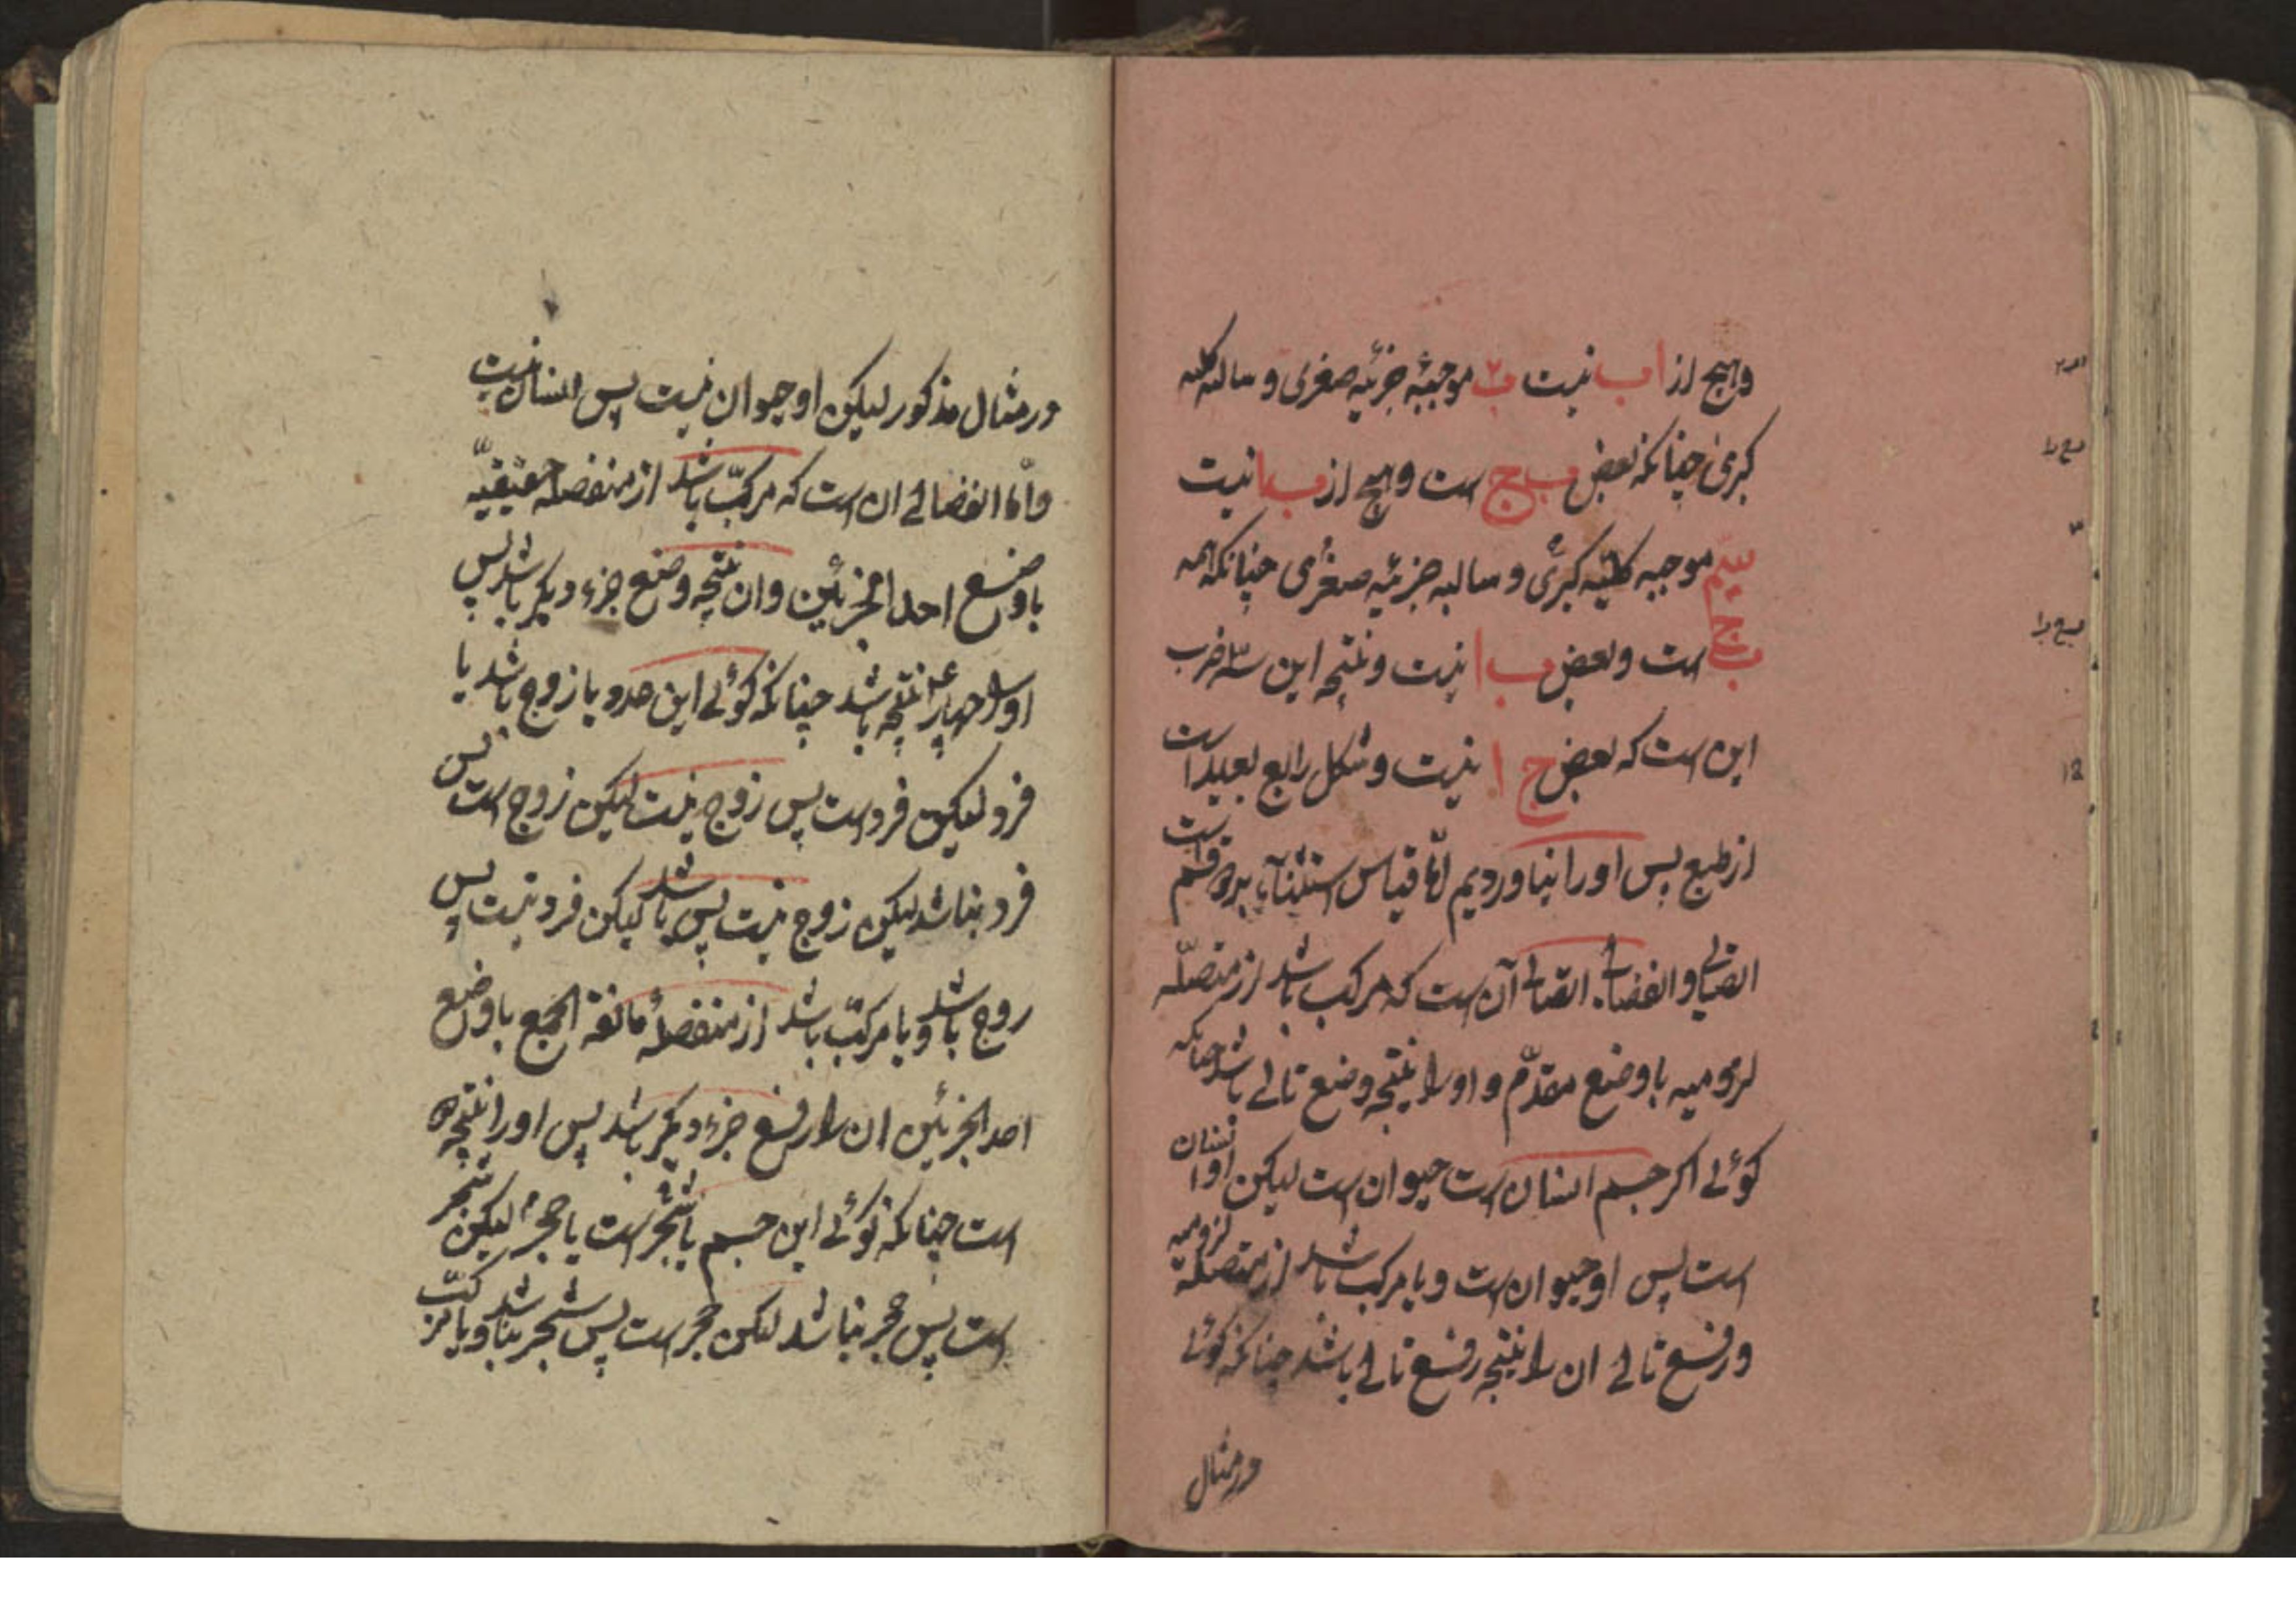 وهیچ از ا ب نیست ب۲ موجبهٔ جزئیه صغری و سالبه کلیه
کبریٰ چنانکه بعض ب ج است وهیچ از ب ا نیست
سیّم موجبه کلیه کبریٰ و سالبه جزئیه صغری چنانکه همه
ب ج است و بعض ب ا نیست و نتیجه این سه ضرب
این است که بعض ج ا نیست و شکل رابع بعید است
از طبع پس او را نیاوردیم امّا قیاس استثنآئی بردو قسم است
اتّصالی و انفصالی اتّصالی آن است که مرکب باشد از متصلّه
لزومیه با وضع مقدّم و او را نتیجه وضع تالے باشد چنانکه
کوئے اکر جسم انسان است حیوان است لیکن او انسان
است پس او حیوان است و یا مرکب باشد از متصله لزومیه
و رفع تالے ان را نتیجه رفع تالے باشد چنانکه کوئے
در مثال
در مثال مذکور لیکن او حیوان نیست پس انسان نیست
وامّا انفصالے ان است که مرکبّ باشد از منفصله حقیقیّه
با وضع احد الجزئین وان نتیجه وضع جزء دیکر باشد پس
او را چهار نتیجه باشد چنانکه کوئے این عدد یا زوج باشد یا
فرد لیکن فرد است پس زوج نیست لیکن زوج است پس
فرد نباشد لیکن زوج نیست پس باشد لیکن فرد نیست پس
زوج باشد و یا مرکبّ باشد از منفصلهٔ مانعة الجمع با وضع
احد الجزئین ان را رفع جزء دیکر باشد پس او را نتیجه
است چنانکه کوئے این جسم یا شجر است یا حجر لیکن شجر
است پس حجر نباشد لیکن حجر است پس شجر نباشد و یا مرکبّ